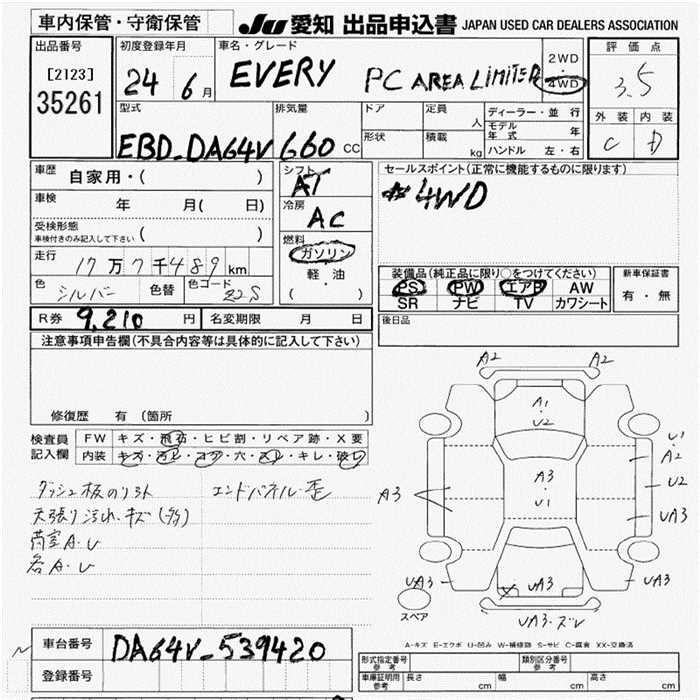 車内保管・守衛保管
JU 愛知 出品申込書 JAPAN USED CAR DEALERS ASSOCIATION
出品番号
[2123]
35261
初度登録年月
24 6 月
車名・グレード
EVERY PC AREA LIMITED
2WD
・
4WD
評価点
3.5
外装 内装
C D
型式
EBD-DA64V
排気量
660 CC
ドア
定員
人
形状
積載
kg
ディーラー・並行
モデル年式 年
ハンドル 左・右
車歴 自家用・( )
車検 年 月( 日)
受検形態
車検付きのみ記入して下さい ( )
走行 17万7千489 km
色 シルバー 色替 色コード Z2S
シフト
AT
冷房
AC
燃料
ガソリン
軽・油
( )
セールスポイント(正常に機能するものに限ります)
#4WD
装備品(純正品に限り○をつけてください)
PS PW エアB AW
SR ナビ TV カワシート
新車保証書
有・無
R券 9,210 円 名変期限 月 日
後日品
注意事項申告欄(不具合内容等は具体的に記入して下さい)
修復歴 有 (箇所 )
検査員
記入欄
FW キズ・飛石・ヒビ割・リペア跡・X要
内装 キズ・汚レ・コゲ・穴・スレ・キレ・破レ
ダッシュ板のリフト エンドパネル歪
天張り汚れ、キズ(多)
荷室A・U
各A・U
A2 A2
A1
・
U2
U1
A2
A3
U1
U2
A3
UA3
UA3
UA3
UA3
UA3・ズレ
スペア
A-キズ E-エクボ U-凹み W-補修跡 S-サビ C-腐食 XX-交換済
車台番号 DA64V-539420
登録番号
形式指定番号
参考
類別区分番号
参考
車庫証明用
参考
長さ cm 幅 cm 高さ cm